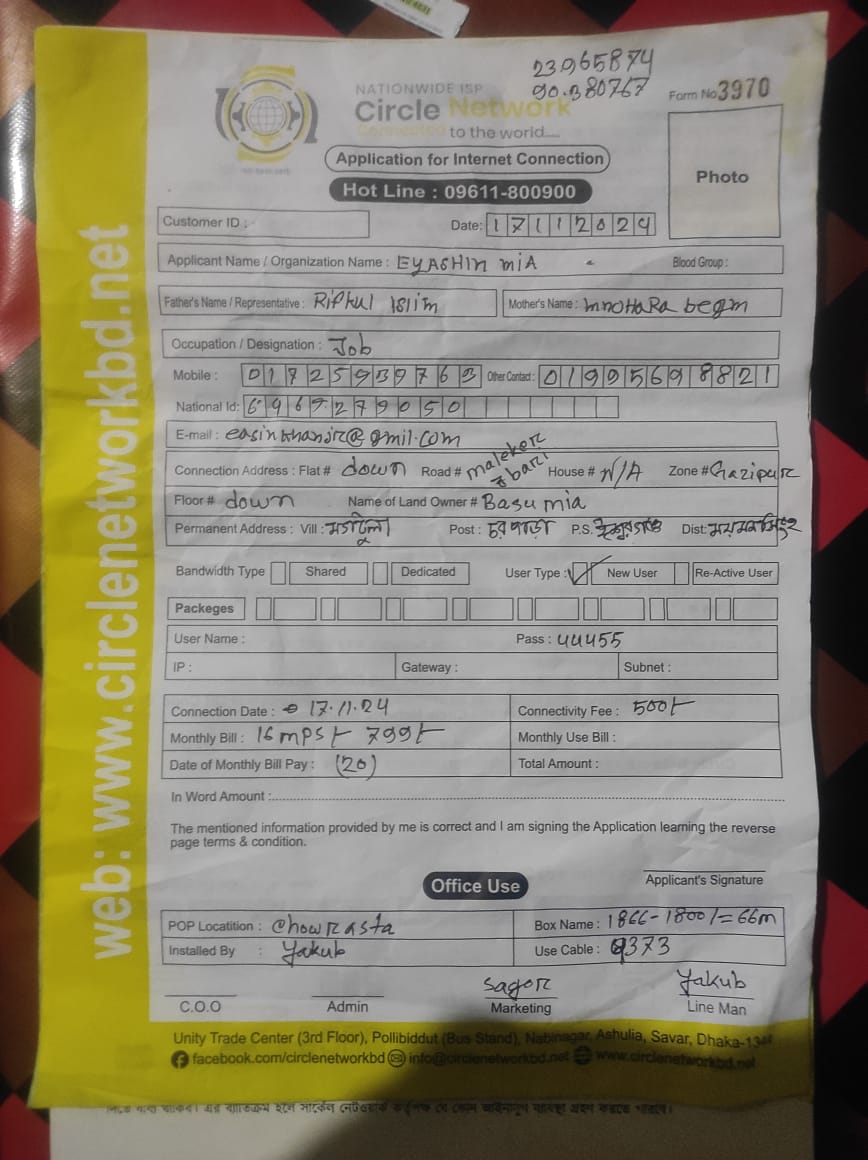 23965874
90.380767
NATIONWIDE ISP
Circle Network
Connected to the world....
Form No 3970
Application for Internet Connection
Hot Line : 09611-800900
Photo
Customer ID :
Date: 17112024
Applicant Name / Organization Name : EYASHIN MIA
Blood Group :
Father's Name / Representative : Riphul Islim
Mother's Name : MnoHaRa begm
Occupation / Designation : Job
Mobile : 01725939763 Other Contact : 01995698821
National Id: 6969279050
E-mail : easinkhandr@gmil.com
Connection Address : Flat # down Road # maleker bari House # N/A Zone # Gazipur
Floor # down Name of Land Owner # Basu mia
Permanent Address : Vill : Post : চর পাড়া P.S. ঈশ্বরগঞ্জ Dist: ময়মনসিংহ
Bandwidth Type Shared Dedicated User Type : New User Re-Active User
Packeges
User Name : Pass : 44455
IP : Gateway : Subnet :
Connection Date : 17.11.24 Connectivity Fee : 500/-
Monthly Bill : 16 mps/- 799/- Monthly Use Bill :
Date of Monthly Bill Pay : (20) Total Amount :
In Word Amount :
The mentioned information provided by me is correct and I am signing the Application learning the reverse
page terms & condition.
Applicant's Signature
Office Use
POP Locatition : Chowrasta Box Name : 1866-1800/=66m
Installed By : Yakub Use Cable : 9373
Sagor Yakub
C.O.O Admin Marketing Line Man
Unity Trade Center (3rd Floor), Pollibiddut (Bus Stand), Nabinagar, Ashulia, Savar, Dhaka-134
facebook.com/circlenetworkbd info@circlenetworkbd.net www.circlenetworkbd.net
web: www.circlenetworkbd.net